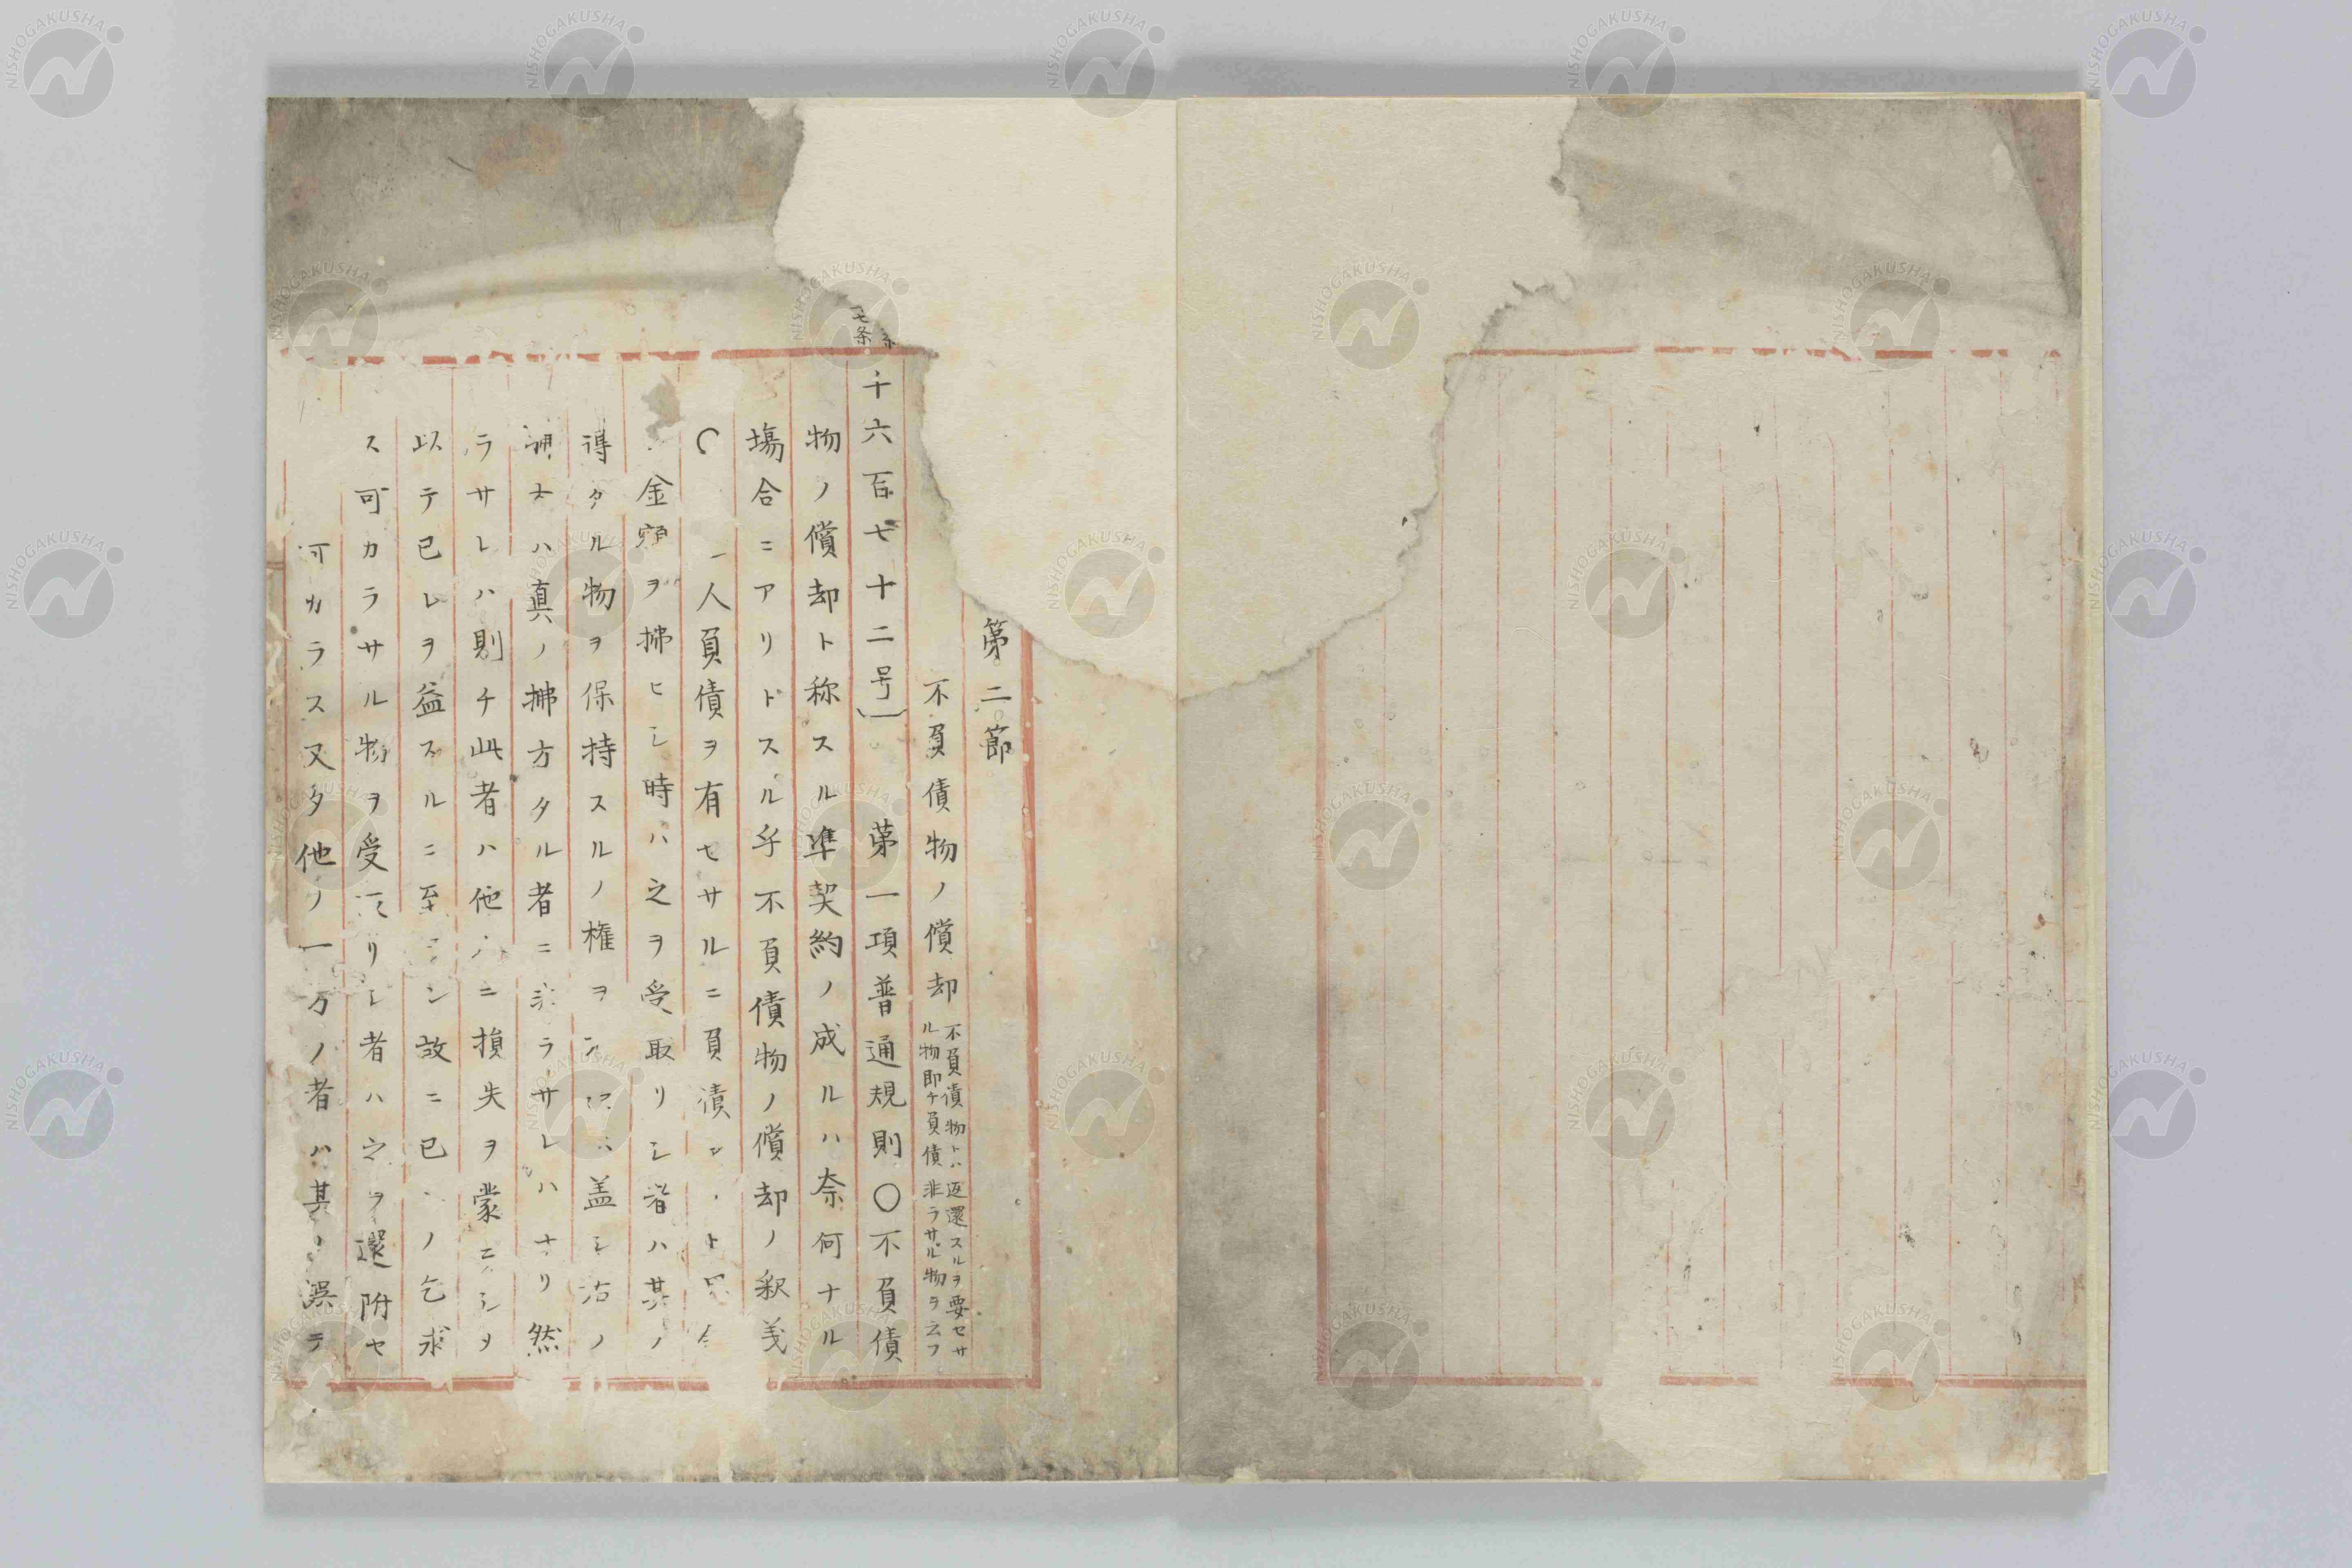 第二節
不負債物ノ償却
不負債物トハ返還スルヲ要セサ
ル物即チ負債非ラサル物ヲ云フ
七条
千六百七十二号 第一項普通規則〇不負債
物ノ償却ト称スル準契約ノ成ルハ奈何ナル
場合ニアリトスル乎不負債物ノ償却ノ釈義
〇 一人負債ヲ有セサルニ負債 ト
金額ヲ拂ヒシ時ハ之ヲ受取リシ者ハ其ノ
得タル物ヲ保持スルノ権ヲ 盖シ ノ
ハ真ノ拂方タル者ニ ラサレハナリ然
ラサレハ則チ此者ハ他 ニ損失ヲ蒙 シヲ
以テ已レヲ益スルニ至 ン故ニ已 ノ乞求
ス可カラサル物ヲ受 リシ者ハ之ヲ還附セ
可カラス又タ他ノ一方ノ者ハ其 誤テ
NISHOGAKUSHA